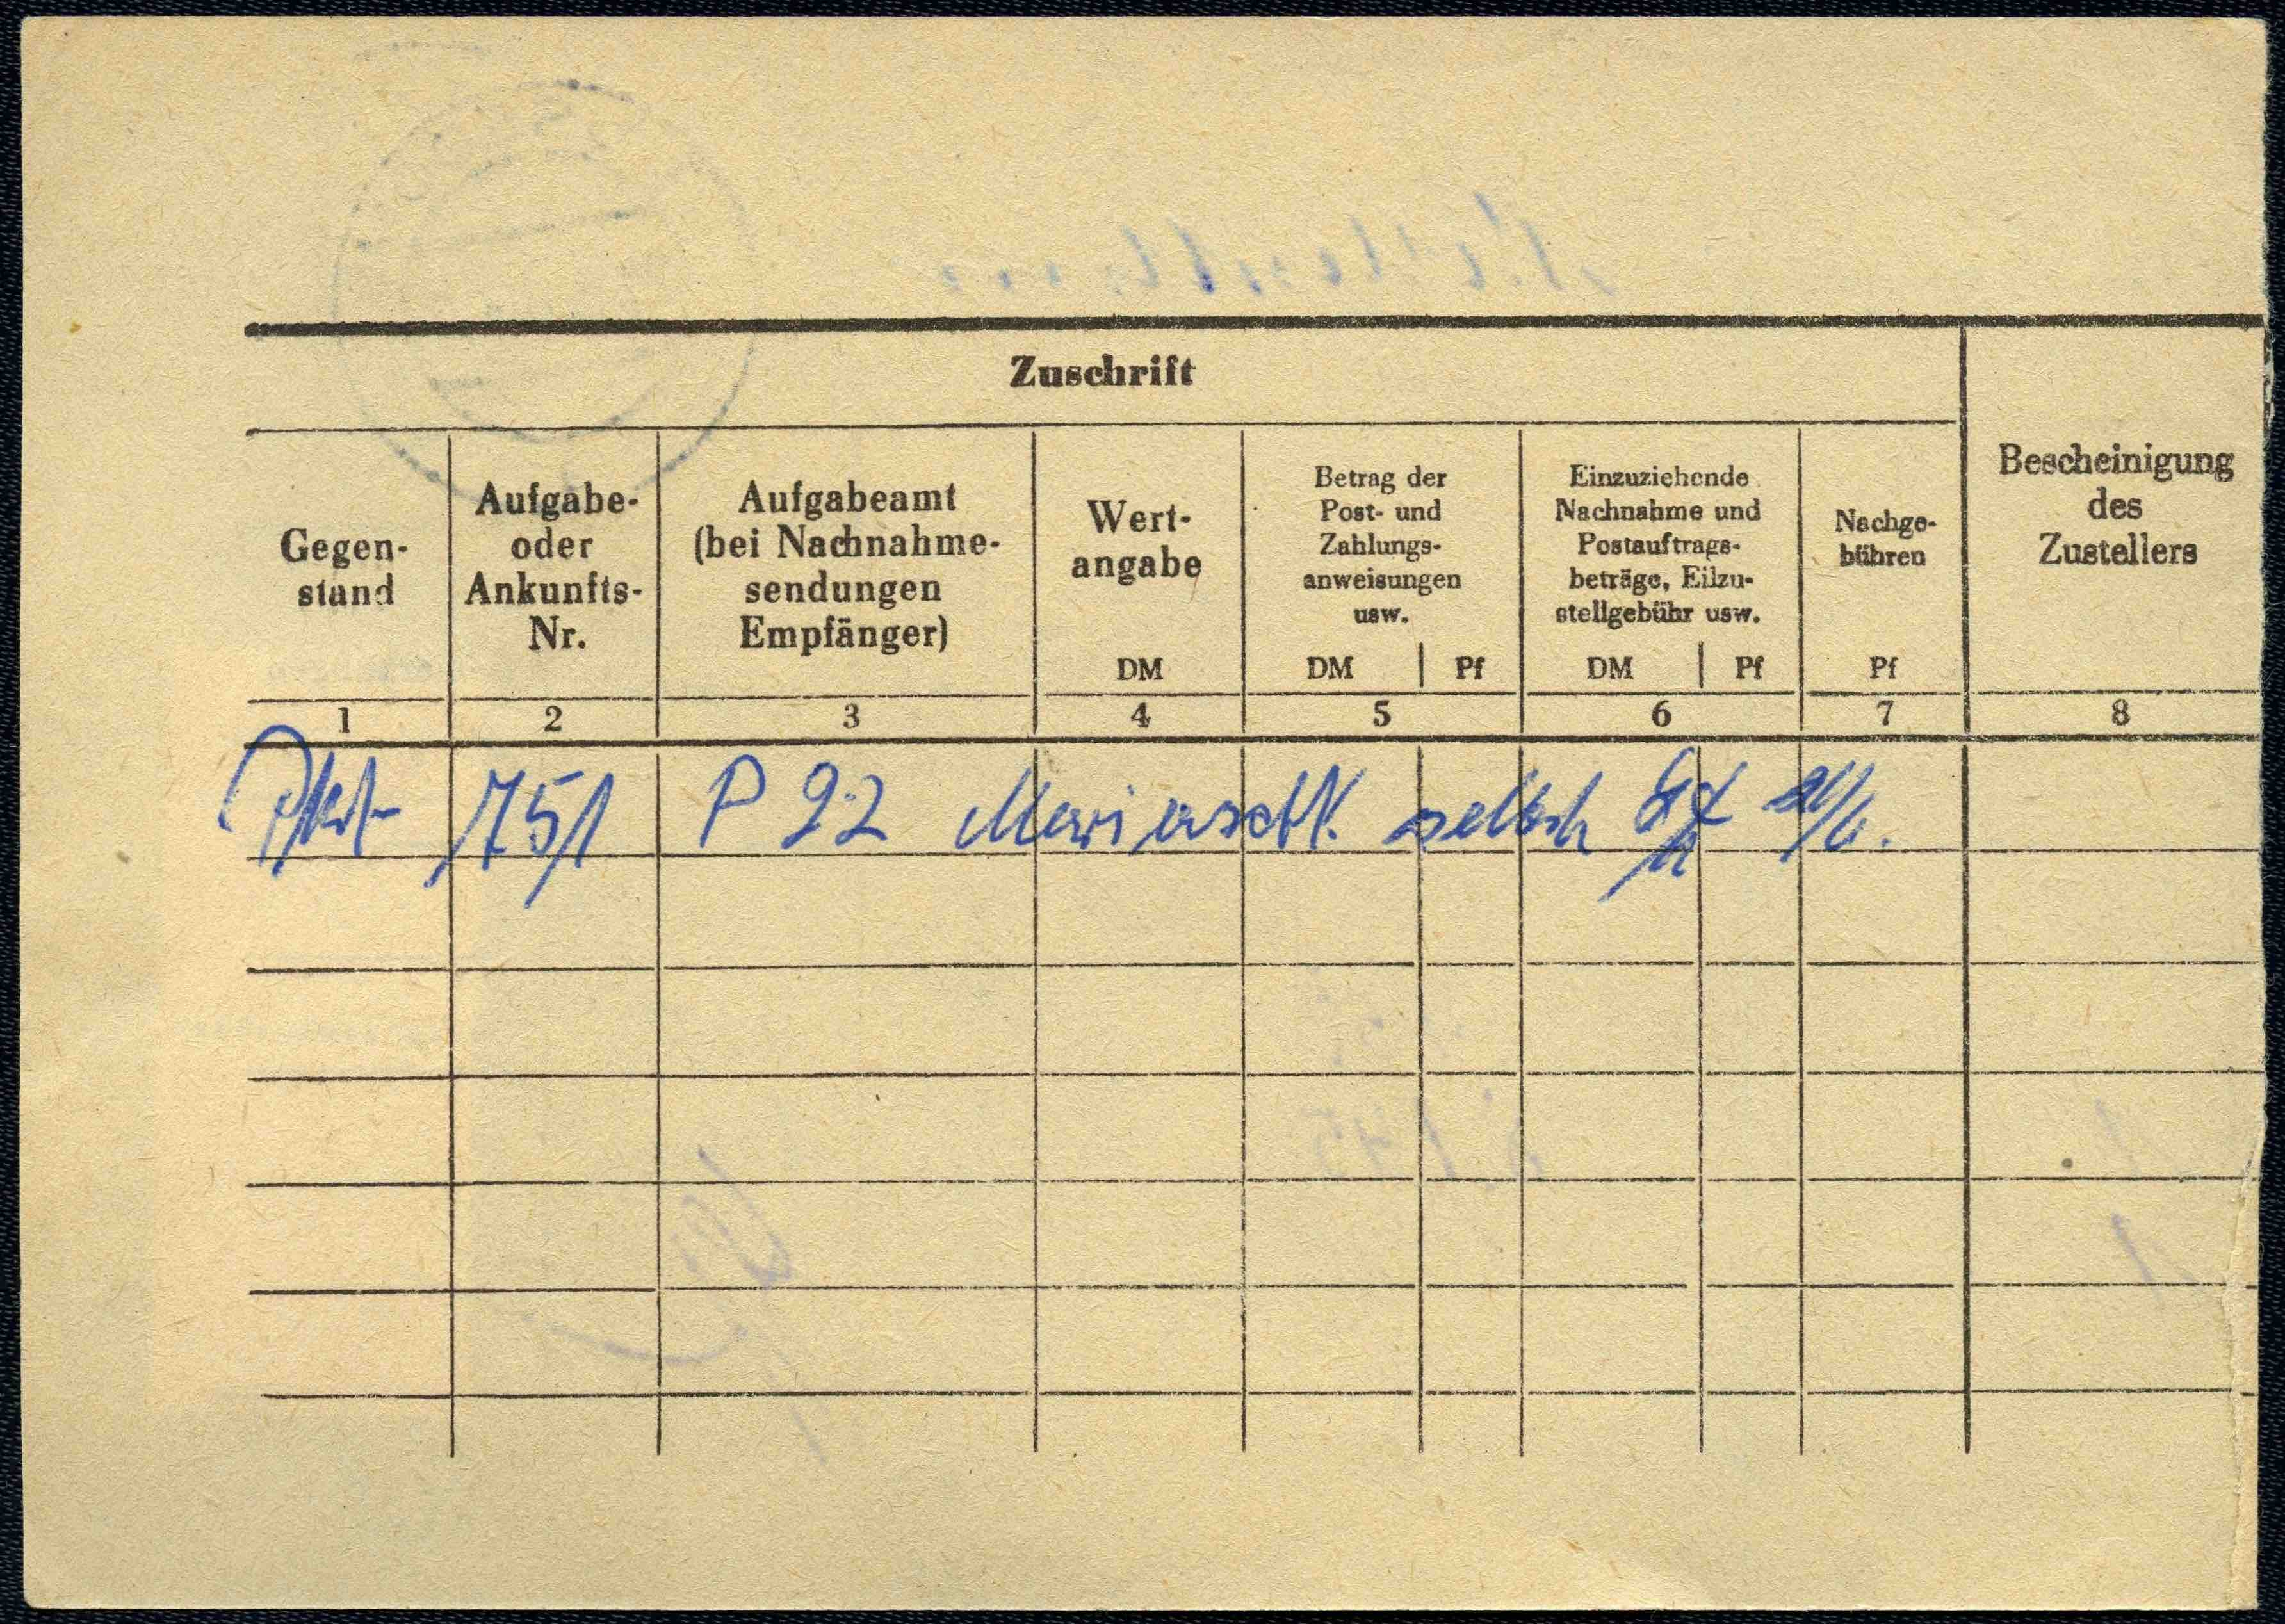 Zuschrift
Gegen-
stand
Aufgabe-
oder
Ankunfts-
Nr.
Aufgabeamt
(bei Nachnahme-
sendungen
Empfänger)
Wert-
angabe
DM
Betrag der
Post- und
Zahlungs-
anweisungen
usw.
DM | Pf
Einzuziehende
Nachnahme und
Postauftrags-
beträge, Eilzu-
stellgebühr usw.
DM | Pf
Nachge-
bühren
Pf
Bescheinigung
des
Zustellers
1 2 3 4 5 6 7 8
751 P 22